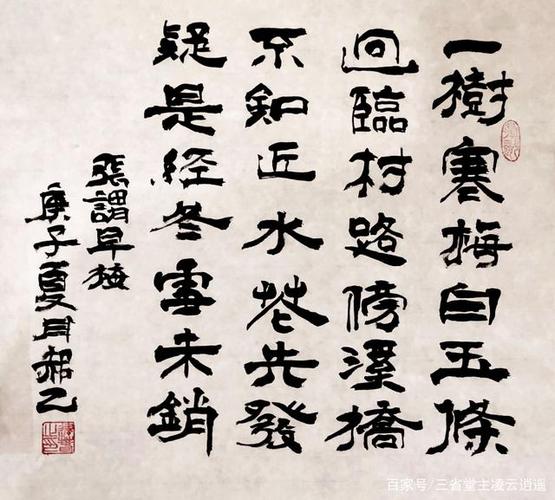 一樹寒梅白玉條
迥臨村路傍溪橋
不知近水花先發
疑是經冬雪未銷
張謂早梅
庚子夏月
百家号/三省堂主凌云逍遥